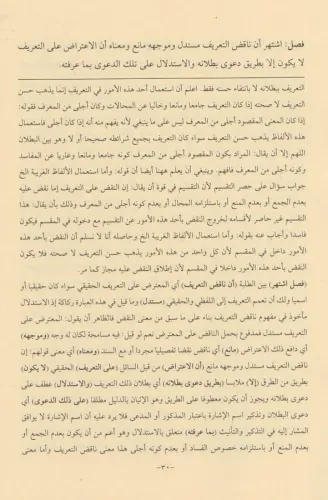 فصل: اشتهر أن ناقض التعريف مستدل وموجهه مانع ومعناه أن الاعتراض على التعريف
لا يكون إلا بطريق دعوى بطلانه والاستدلال على تلك الدعوى بما عرفته.
التعريف ببطلانه لا بانتفاء حسنه فقط. اعلم أن استعمال أحد هذه الأمور في التعريف إنما يذهب حسن
التعريف لا صحته إذا كان التعريف جامعا ومانعا وخاليا عن المحالات وكان أجلى من المعرف فقوله:
إذا كان المعنى المقصود أجلى من المعرف ليس على ما ينبغي لأنه يفهم منه أنه إذا كان أجلى فاستعمال
هذه الألفاظ يذهب حسن التعريف سواء كان التعريف بجميع شرائطه صحيحا أو لا وهو بين البطلان
اللهم إلا أن يقال: المراد بكون المقصود أجلى من المعرف كونه جامعا ومانعا وعاريا عن المفاسد
وكونه أجلى من المعرف فافهم. وينبغي أن يعلم ههنا أيضا أن قوله: وأما استعمال الألفاظ الغريبة الخ
جواب سؤال على حصر التقسيم لأن التقسيم في قوة أن يقال: إن النقض على التعريف إما نقض عليه
بعدم الجمع أو بعدم المنع أو باستلزام المحال أو بعدم كونه أجلى من المعرف وذلك بأن يقال: هذا
التقسيم غير حاصر لأقسامه لخروج النقض بأحد هذه الأمور عن التقسيم مع دخوله في المقسم فيكون
قاصرا وأجاب عنه بقوله: وأما استعمال الألفاظ الغريبة الخ وحاصله أنا لا نسلم أن النقض بأحد هذه
الأمور داخل في المقسم لأن كل واحد من هذه الأمور يذهب حسن التعريف لا صحته فلا يكون
النقض بأحد هذه الأمور داخلا في المقسم لأن إطلاق النقض عليه مجاز كما مر.
(فصل اشتهر) بين الطلبة (أن ناقض التعريف) أي المعترض على التعريف الحقيقي سواء كان حقيقيا أو
اسميا ولك أن تعمم التعريف إلى اللفظي والحقيقي (مستدل) وما قيل في هذه العبارة ركاكة إذ الاستدلال
مأخوذ في مفهوم ناقض التعريف بناء على ما سبق من معنى النقض فالظاهر أن يقول: المعترض على
التعريف مستدل فمدفوع بحمل الناقض على المعترض نعم لو قيل: فيه مسامحة لكان له وجه (وموجهه)
أي دافع ذلك الاعتراض (مانع) أي ناقض نقضا تفصيليا مجردا أو مع السند (ومعناه) أي معنى قولهم: إن
ناقض التعريف مستدل وموجهه مانع (أن الاعتراض) من قبل السائل (على التعريف) الحقيقي (لا يكون)
بطريق من الطرق (إلا) ملابسا (بطريق دعوى بطلانه) أي بطلان ذلك التعريف (والاستدلال) عطف على
دعوى بطلانه ويجوز أن يكون معطوفا على الطريق وهو الإتيان بالدليل مطلقا (على تلك الدعوى) أي
دعوى البطلان وتذكير اسم الإشارة باعتبار المذكور أو المدعى فلا يرد عليه أن اسم الإشارة لا يوافق
المشار إليه في التذكير والتأنيث (بما عرفته) متعلق بالاستدلال وهو أعم من أن يكون بعدم الجمع أو
بعدم المنع أو باستلزامه مخصوص الفساد أو بعدم كونه أجلى هذا معنى ناقض التعريف وأما معنى
-٣٠-